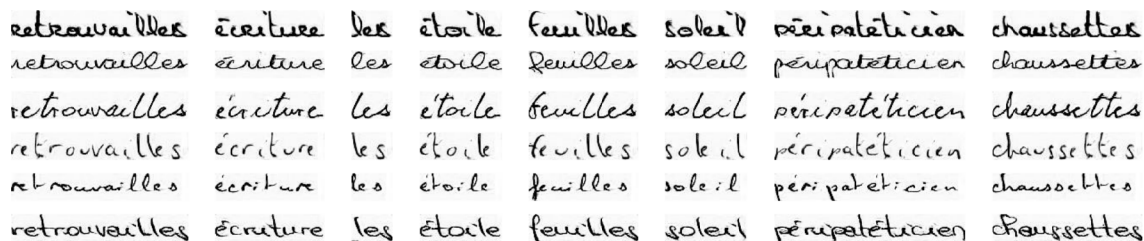 retrouvailles écriture les étoile feuilles soleil péripatéticien chaussettes
retrouvailles écriture les étoile feuilles soleil péripatéticien chaussettes
retrouvailles écriture les étoile feuilles soleil péripatéticien chaussettes
retrouvailles écriture les étoile feuilles soleil péripatéticien chaussettes
retrouvailles écriture les étoile feuilles soleil péripatéticien chaussettes
retrouvailles écriture les étoile feuilles soleil péripatéticien chaussettes